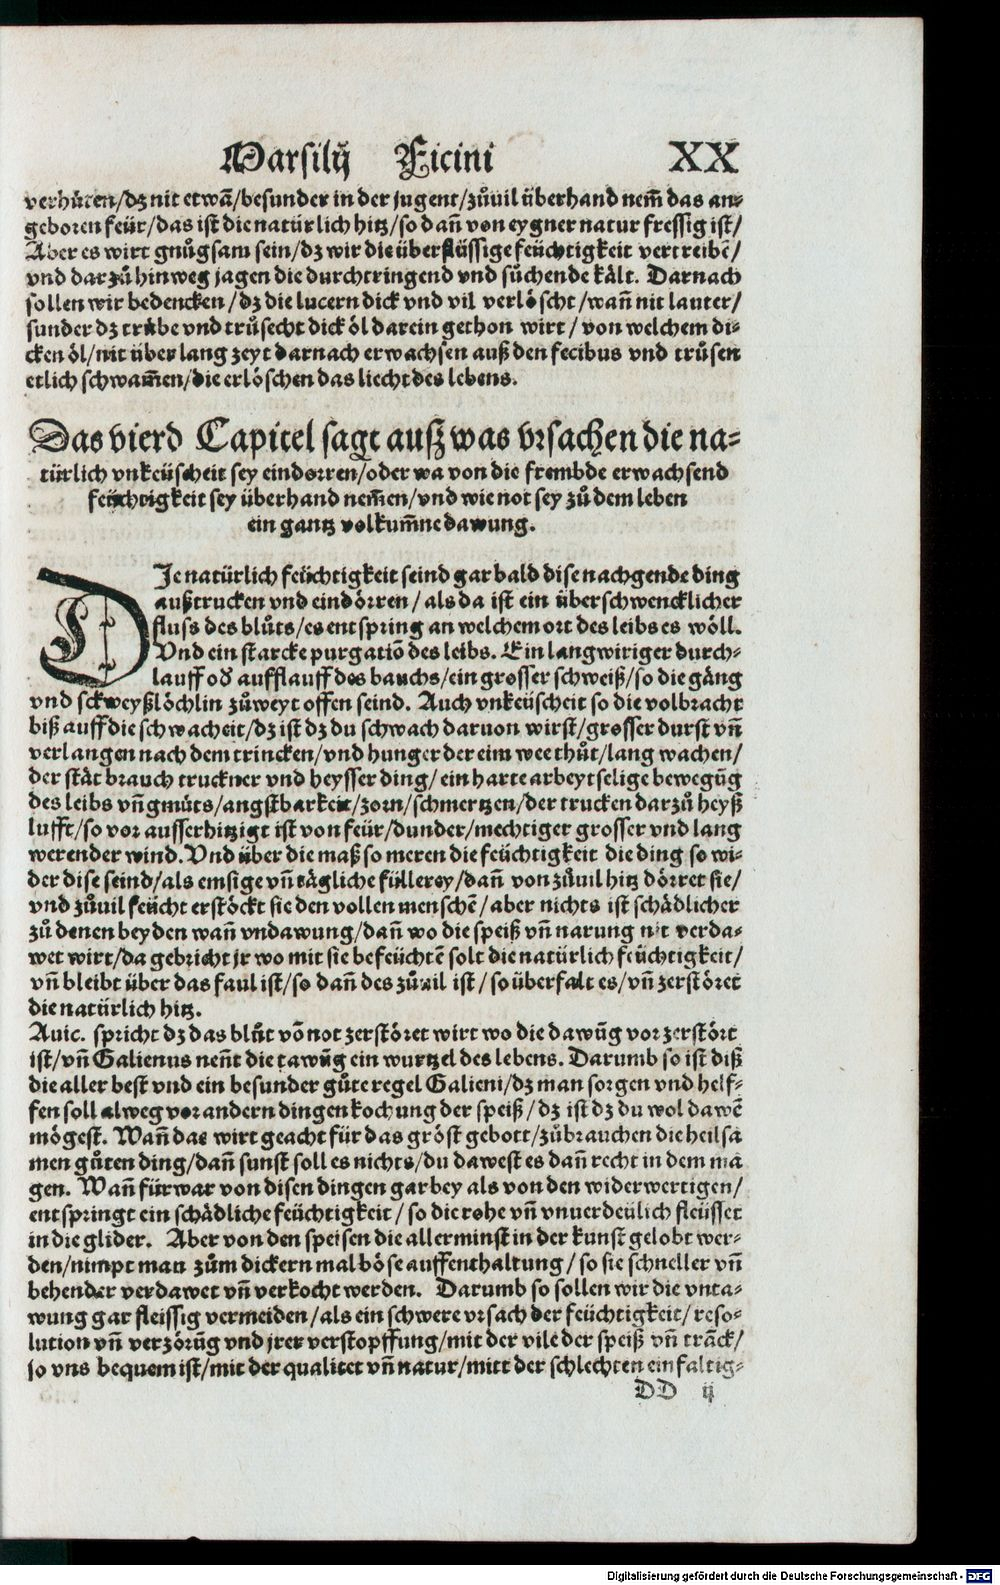 Marsilij Ficini XX
verhüten/dz nit etwã/besunder in der jugent/zůvil überhand nem̃ das an⸗
geboren feür/das ist die natürlich hitz/so dañ von eygner natur fressig ist/
Aber es wirt gnůgsam sein/dz wir die überflüssige feüchtigkeit vertreibẽ/
vnd darzů hinweg jagen die durchtringend vnd sůchende kält. Darnach
sollen wir bedencken/dz die lucern dick vnd vil verlöscht/wañ nit lauter/
sunder dz trübe vnd trůsecht dick öl darein gethon wirt/von welchem di⸗
cken öl/nit über lang zeyt darnach erwachsen auß den fecibus vnd trůsen
etlich schwam̃en/die erlöschen das liecht des lebens.
Das vierd Capitel sagt ausz was vrsachen die na⸗
türlich vnkeüscheit sey eindorren/oder wa von die frembde erwachsend
feüchtigkeit sey überhand nem̃en/vnd wie not sey zů dem leben
ein gantz volkum̃ne dawung.
DJe natürlich feüchtigkeit seind gar bald dise nachgende ding
außtrucken vnd eindörren/als da ist ein überschwencklicher
fluss des blůts/es entspring an welchem ort des leibs es wöll.
Vnd ein starcke purgatiõ des leibs. Ein langwiriger durch⸗
lauff oď aufflauff des bauchs/ein grosser schweiß/so die gäng
vnd sckweyßlöchlin zůweyt offen seind. Auch vnkeüscheit so die volbracht
biß auff die schwacheit/dz ist dz du schwach daruon wirst/grosser durst vñ
verlangen nach dem trincken/vnd hunger der eim wee thůt/lang wachen/
der stät brauch truckner vnd heysser ding/ein harte arbeytselige bewegũg
des leibs vñ gmüts/angstbarkeit/zorn/schmertzen/der trucken darzů heyß
lufft/so vor ausserhitzigt ist von feür/dunder/mechtiger grosser vnd lang
werender wind. Vnd über die maß so meren die feüchtigkeit die ding so wi⸗
der dise seind/als emsige vñ tägliche füllerey/dañ von zůvil hitz dörret sie/
vnd zůvil feücht erstöckt sie den vollen menschẽ/aber nichts ist schädlicher
zů denen beyden wañ vndawung/dañ wo die speiß vñ narung nit verda⸗
wet wirt/da gebricht jr wo mit sie befeüchtẽ solt die natürlich feüchtigkeit/
vñ bleibt über das faul ist/so dañ des zůvil ist/so überfalt es/vñ zerstöret
die natürlich hitz.
Auic. spricht dz das blůt võ not zerstöret wirt wo die dawũg vor zerstört
ist/vñ Galienus neñt die tawũg ein wurtzel des lebens. Darumb so ist diß
die aller best vnd ein besunder gůte regel Galieni/dz man sorgen vnd helf⸗
fen soll alweg vor andern dingen kochung der speiß/dz ist dz du wol dawẽ
mögest. Wañ das wirt geacht für das gröst gebott/zůbrauchen die heilsã
men gůten ding/dañ sunst soll es nichts/du dawest es dañ recht in dem mã
gen. Wañ fürwar von disen dingen gar bey als von den widerwertigen/
entspringt ein schädliche feüchtigkeit/so die rohe vñ vnuerdeülich fleüsset
in die glider. Aber von den speisen die allerminst in der kunst gelobt wer⸗
den/nimpt man zům dickern mal böse auffenthaltung/so sie schneller vñ
behender verdawet vñ verkocht werden. Darumb so sollen wir die vnta⸗
wung gar fleissig vermeiden/als ein schwere vrsach der feüchtigkeit/reso⸗
lution vñ verzörũg vnd jrer verstopffung/mit der vile der speiß vñ trãck/
so vns bequem ist/mit der qualitet vñ natur/mitt der schlechten einfaltig⸗
DD ij
Digitalisierung gefördert durch die Deutsche Forschungsgemeinschaft - DFG